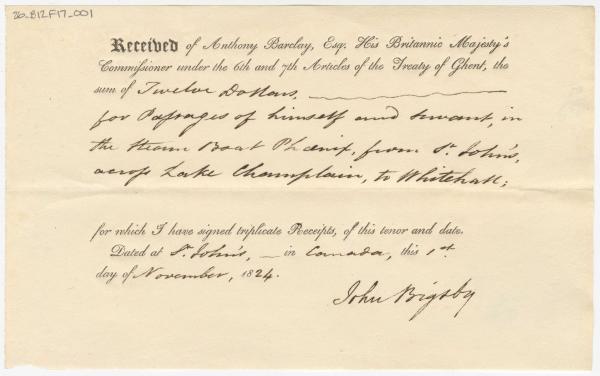 26_B12F17_001
Received of Anthony Barclay, Esq. His Britannic Majesty's
Commissioner under the 6th and 7th Articles of the Treaty of Ghent, the
sum of Twelve Dollars,
for Passages of himself and servant, in
the Steam Boat Phœnix, from St. John's,
across Lake Champlain, to Whitehall;
for which I have signed triplicate Receipts, of this tenor and date.
Dated at St. John's, — in Canada, this 1st.
day of November, 1824.
John Bigsby